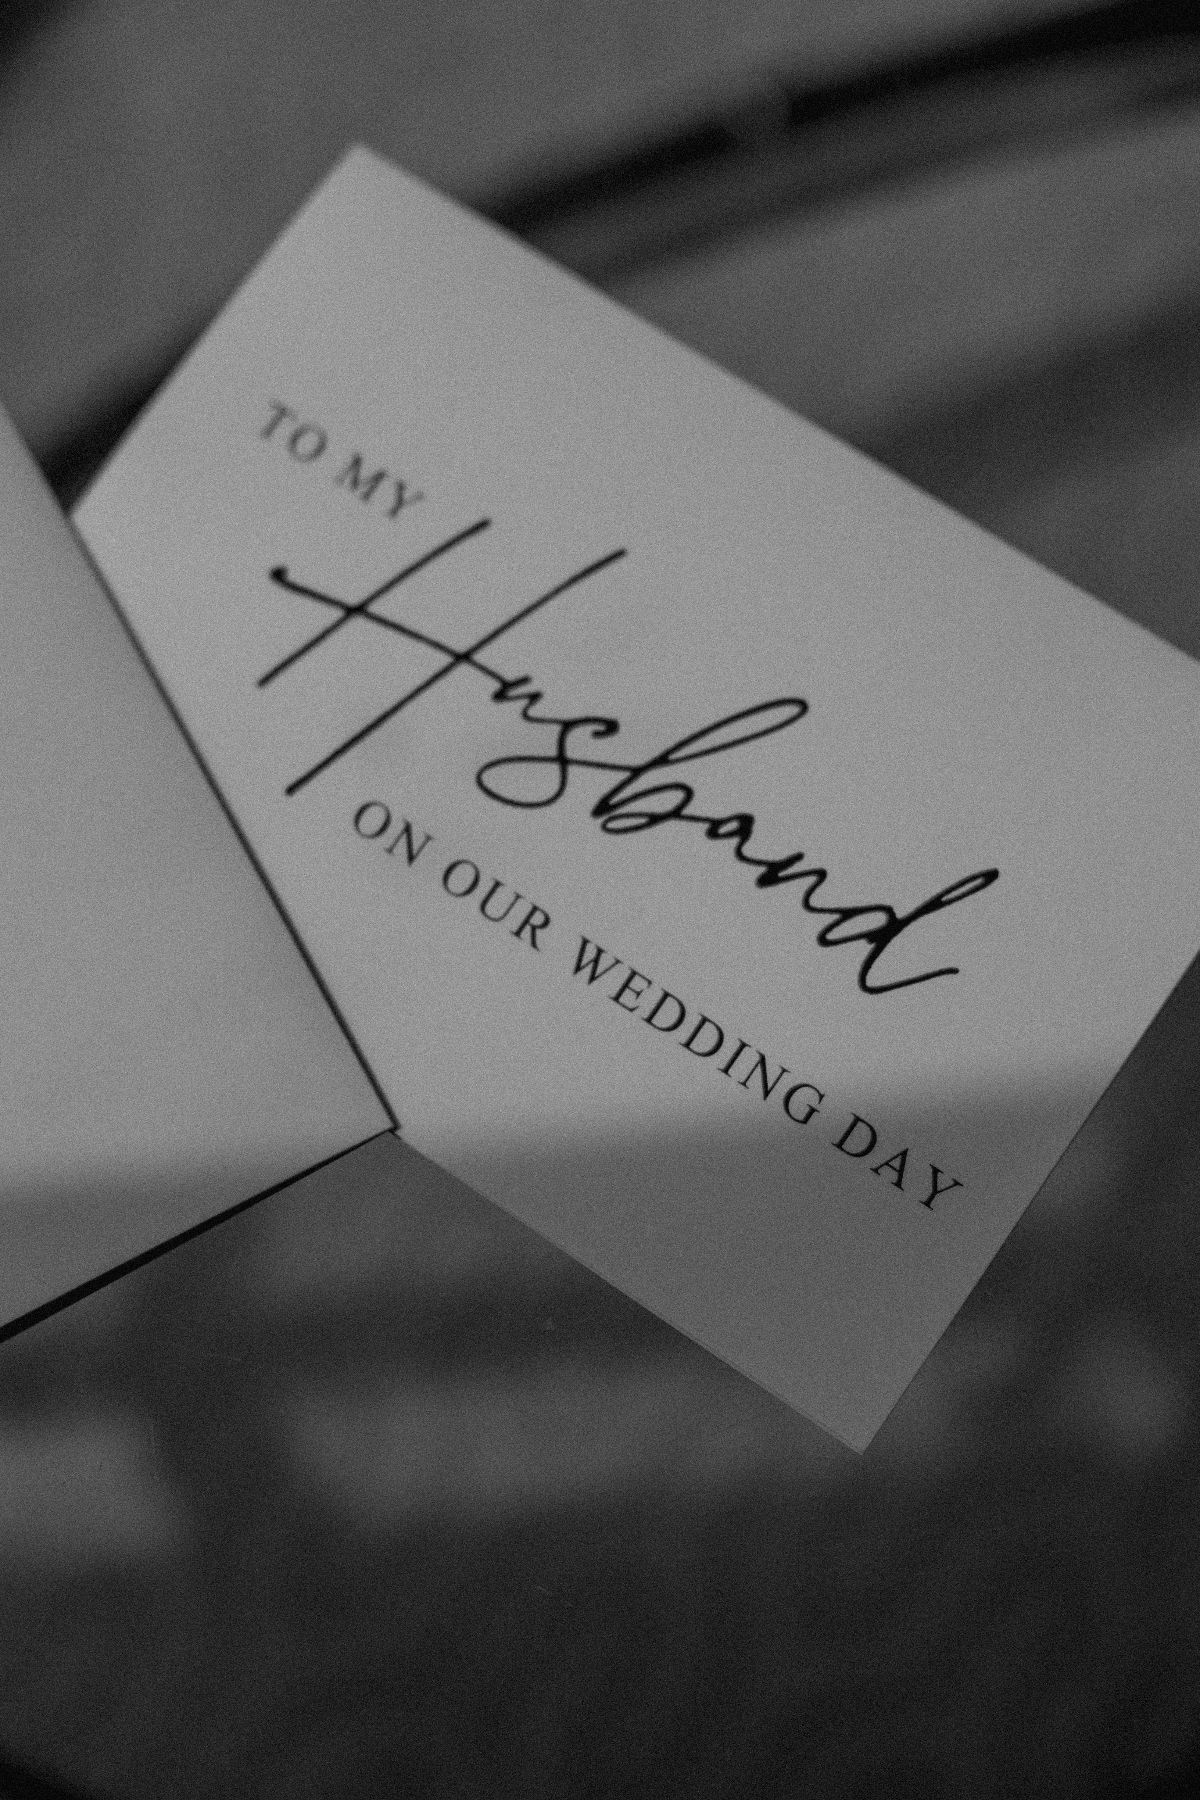 TO MY
Husband
ON OUR WEDDING DAY